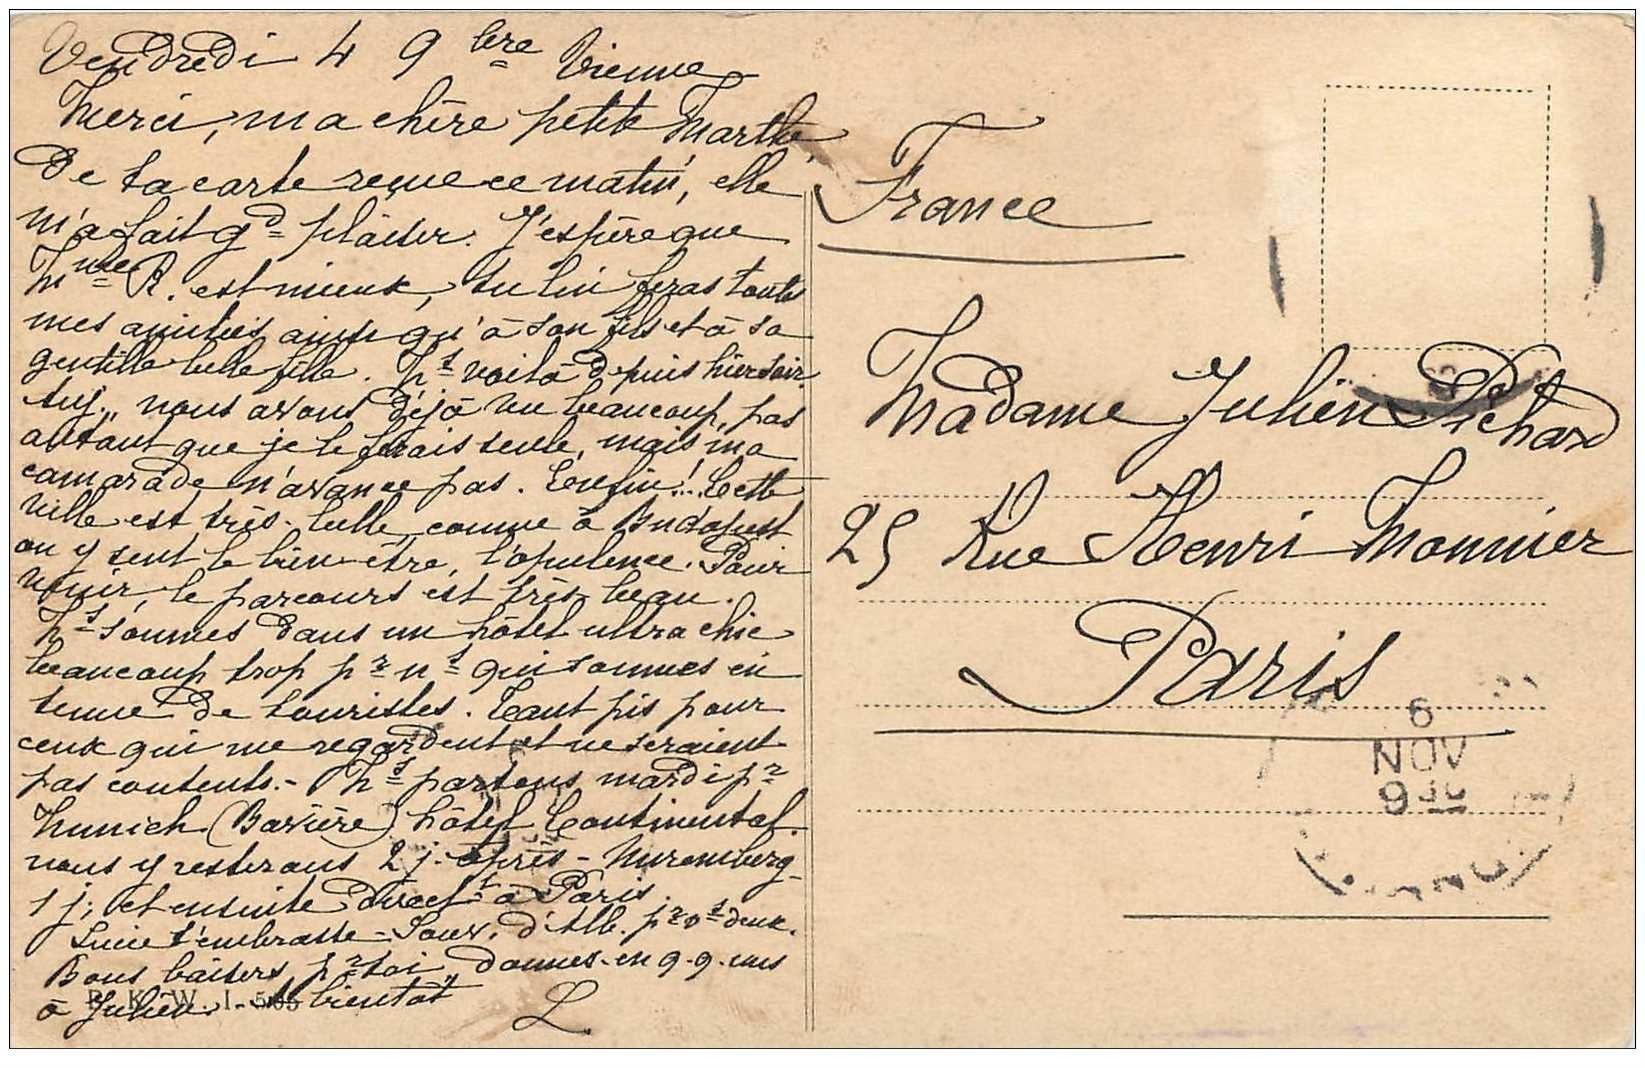 Vendredi 4 9 bre Vienne
Merci, ma chère petite Marthe,
de ta carte reçue ce matin, elle
m'a fait gd plaisir. J'espère que
Mme R. est mieux, tu lui feras toutes
mes amitiés, ainsi qu'à son fils et à sa
gentille belle fille. Ns voilà depuis hier soir
ici, nous avons déjà vu beaucoup, pas
autant que je le ferais seule, mais ma
camarade n'avance pas. Enfin!... Cette
ville est très belle, comme à Budapest
on y sent le bien-être, l'opulence. Pour
venir, le parcours est très beau.
Ns sommes dans un hôtel ultra chic
beaucoup trop pr ns qui sommes en
tenue de touristes. Tant pis pour
ceux qui me regardent et ne seraient
pas contents.- Ns partons mardi pr
Munich (Bavière) hôtel Continental.
nous y resterons 2 j. après - Nuremberg -
1 j, et ensuite direct t à Paris.
Lucie t'embrasse - Souv. d'Alb. pr vs deux.
Bons baisers pr toi, donnes-en q-q-uns
à Julien. - A bientôt
L
B. K. W. I. 5 05
France
Madame Julien Pichard
25 Rue Henri Monnier
Paris
6
NOV